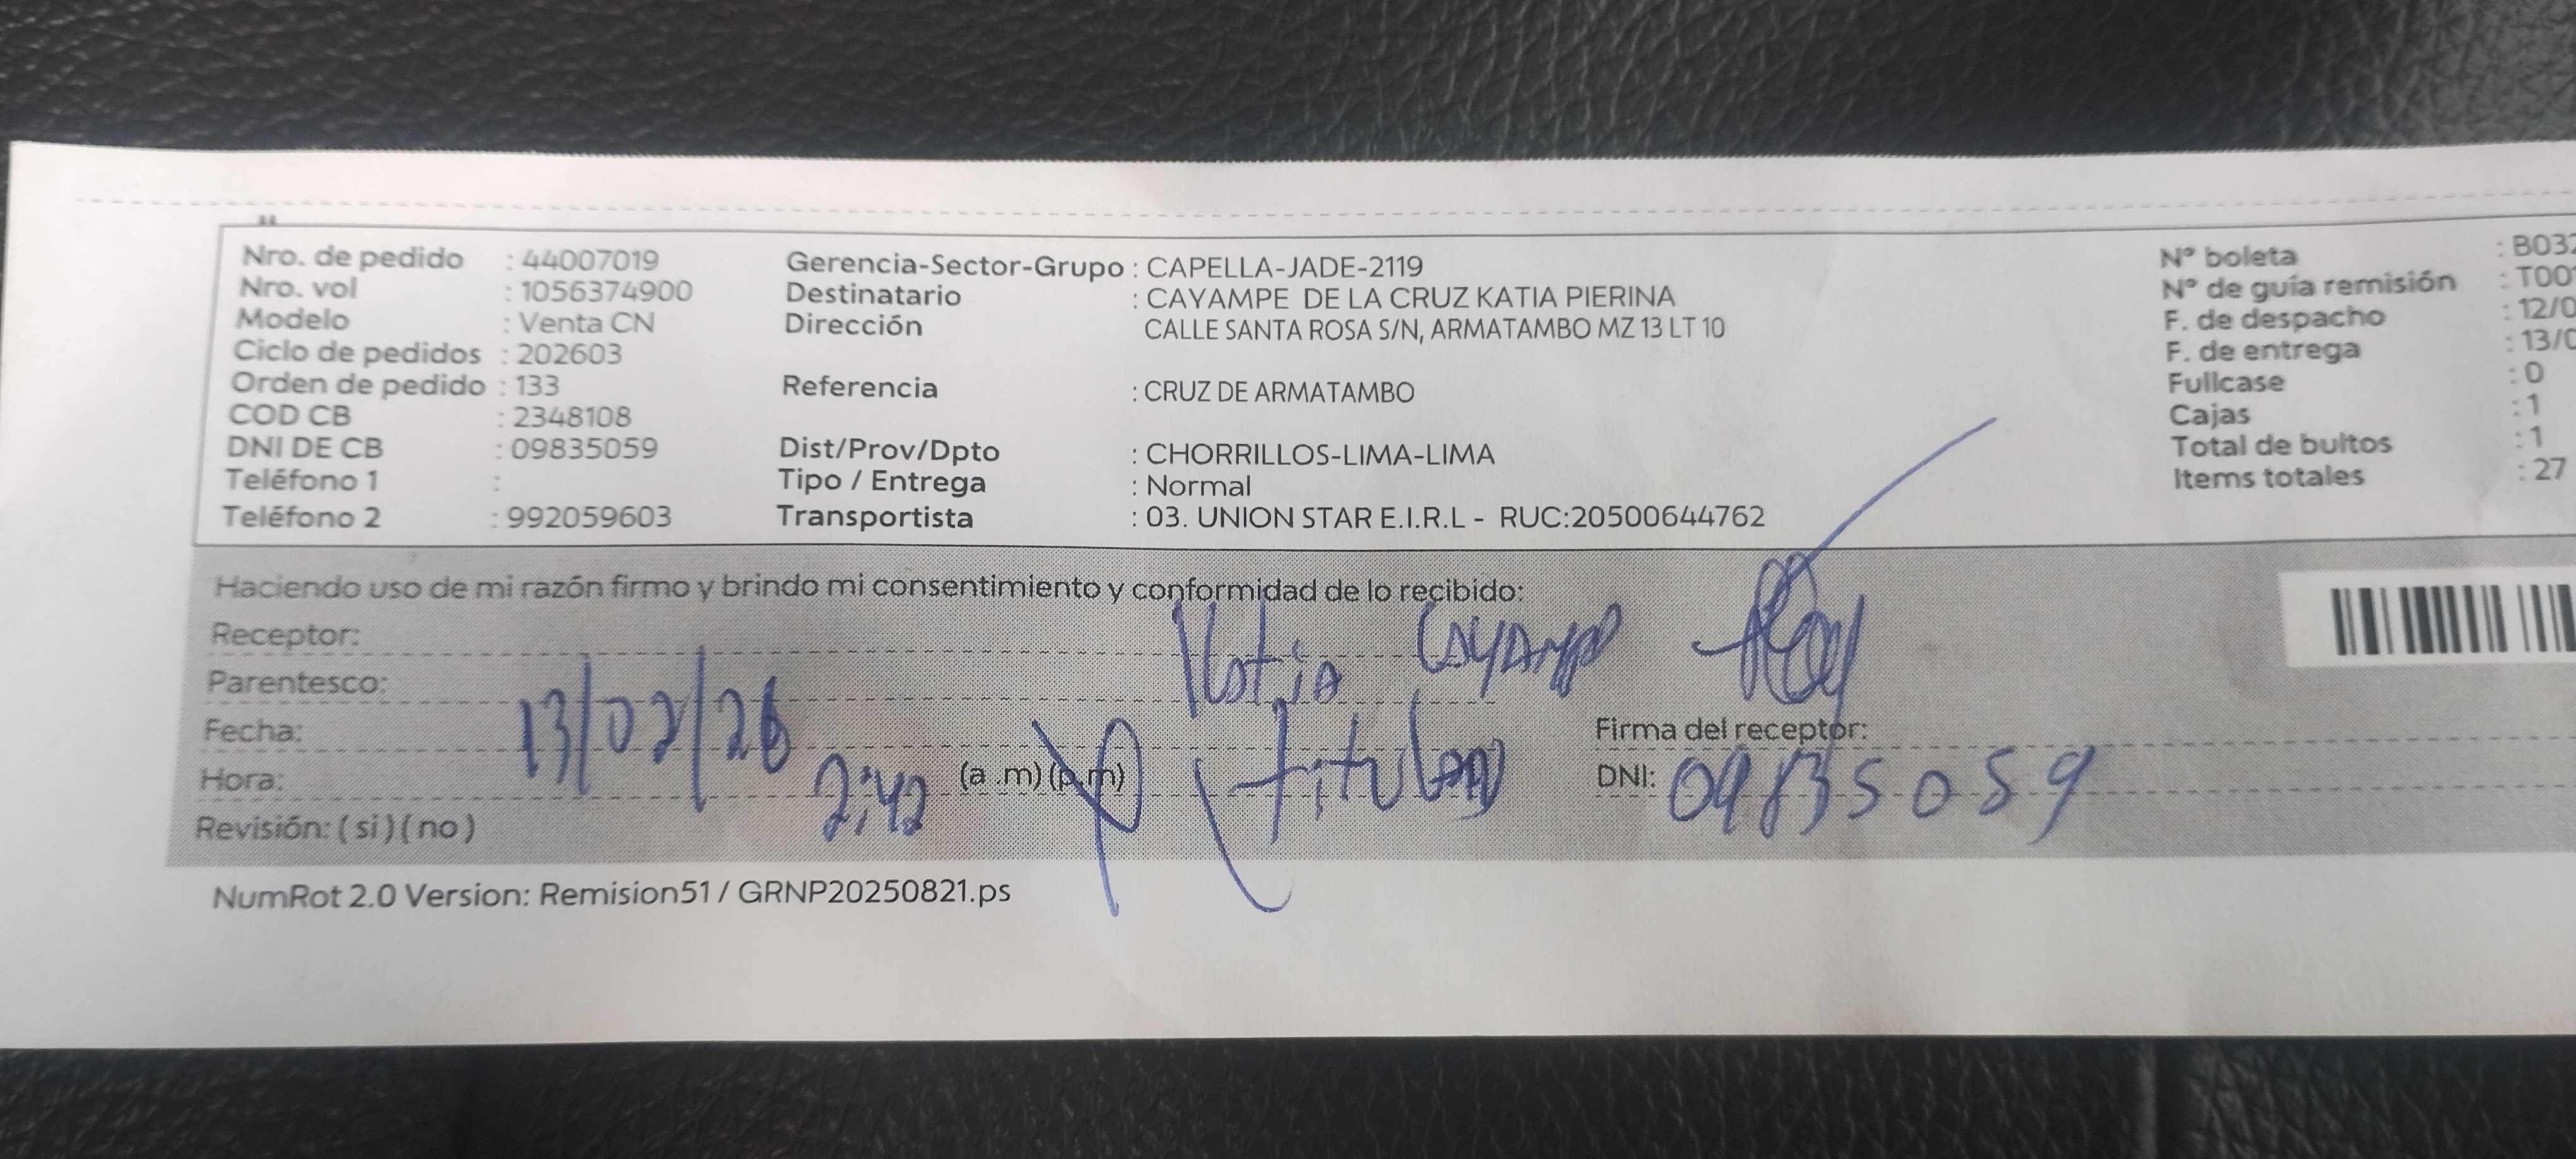 Nro. de pedido : 44007019
Nro. vol : 1056374900
Modelo : Venta CN
Ciclo de pedidos : 202603
Orden de pedido : 133
COD CB : 2348108
DNI DE CB : 09835059
Teléfono 1 :
Teléfono 2 : 992059603
Gerencia-Sector-Grupo : CAPELLA-JADE-2119
Destinatario : CAYAMPE DE LA CRUZ KATIA PIERINA
Dirección CALLE SANTA ROSA S/N, ARMATAMBO MZ 13 LT 10
Referencia : CRUZ DE ARMATAMBO
Dist/Prov/Dpto : CHORRILLOS-LIMA-LIMA
Tipo / Entrega : Normal
Transportista : 03. UNION STAR E.I.R.L - RUC:20500644762
N° boleta : B032
N° de guía remisión : T001
F. de despacho : 12/0
F. de entrega : 13/0
Fullcase : 0
Cajas : 1
Total de bultos : 1
Items totales : 27
Haciendo uso de mi razón firmo y brindo mi consentimiento y conformidad de lo recibido:
Receptor: Katia Cayampe
Parentesco:
Fecha: 13/02/26 titular
Firma del receptor:
Hora: 2:42 (a .m) (p.m)
DNI: 09835059
Revisión: ( si ) ( no )
NumRot 2.0 Version: Remision51 / GRNP20250821.ps